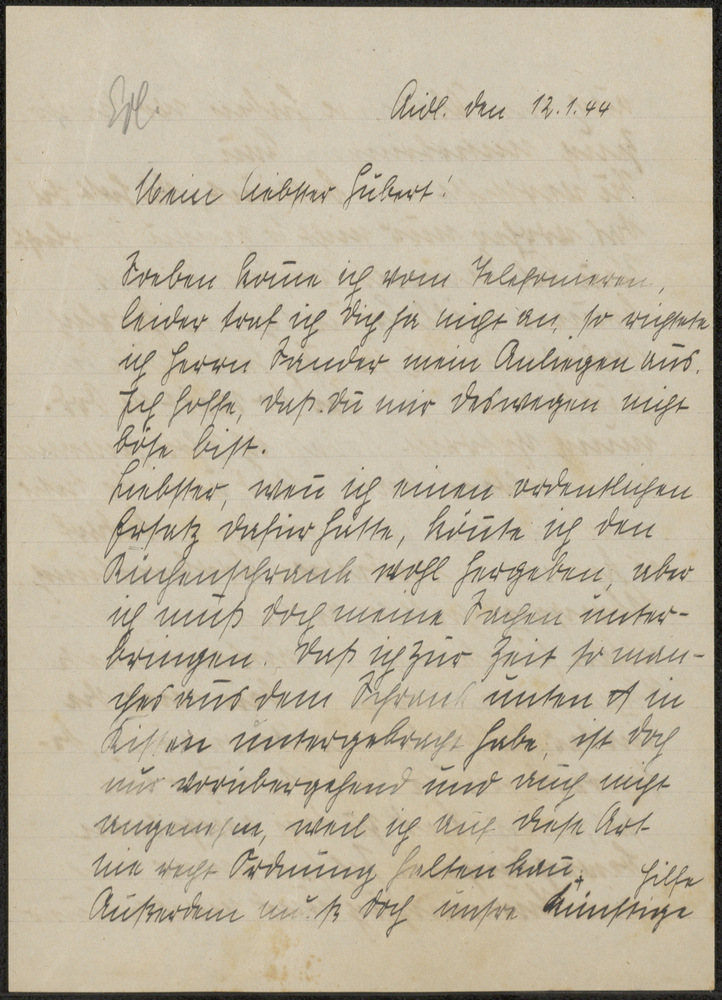 Erl.
Aidl. den 12.1.44
Mein liebster Hubert!
Soeben kom̅e ich vom Telefonieren,
leider traf ich Dich ja nicht an, so richtete
ich Herrn Sander mein Anliegen aus.
Ich hoffe, daß Du mir deswegen nicht
böse bist.
Liebster, wen̅ ich einen ordentlichen
Ersatz dafür hätte, kön̅te ich den
Küchenschrank wohl hergeben, aber
ich muß doch meine Sachen unter-
bringen. Daß ich zur Zeit so man-
ches aus dem Schrank unten in
Kisten untergebracht habe, ist doch
nur vorübergehend und auch nicht
angenehm, weil ich auf diese Art
nie recht Ordnung halten kan̅.
Hilfe
Außerdem muß doch unsre künftige